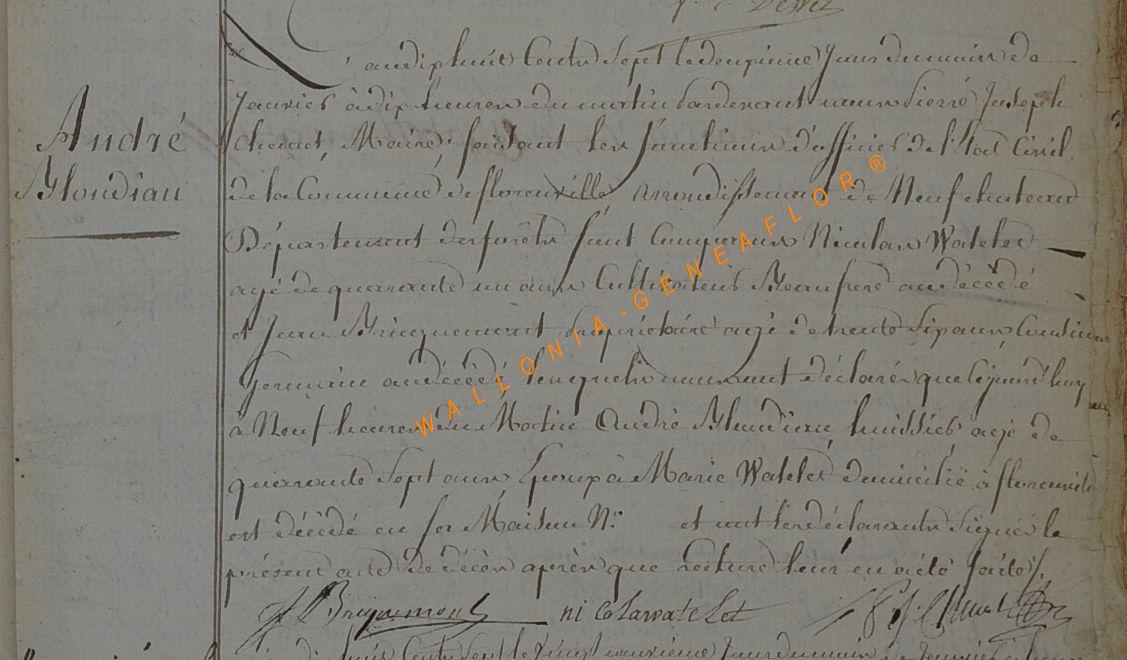 André
Blondiau
L'an dix huit Cents Sept le deuxieme Jour du mois de
Janvier à dix heures du matin Pardevant nous Pierre Joseph
Maire faisant les fonctions d'officier de l'Etat Civil
de la Commune de florenville arrondissement de Neufchateau
Département des forêts sont Comparus Nicolas Watelet
agé de quarante un ans Cultivateur Beaufrere au décédé
et Jean Bricquemont propriétaire agé de trente Six ans Cousin
Germain au décédé lesquels nous ont déclarés que Cejourd'huy
à Neuf heures du Matin André Blondiau huissier agé de
quarante Sept ans Epoux à Marie Watelet domicilié à florenville
est décédé en sa Maison N.° et ont les déclarants Signés le
présent acte de décès après que Lecture leur en a été faite /.
J Briquemont nicolas watelet
WALLONIA-GENEAFLOR ®